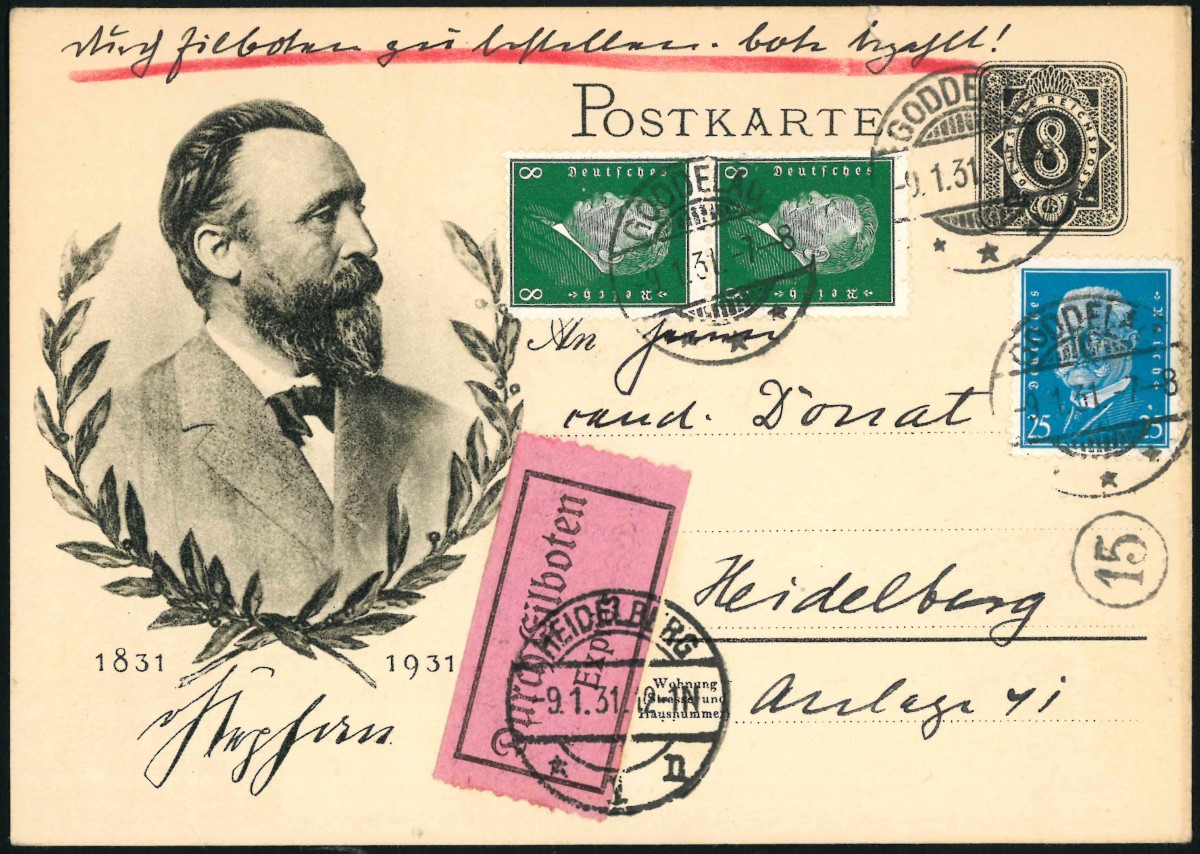 durch Eilboten zu bestellen. bote bezahlt!
POSTKARTE
DEUTSCHE REICHSPOST
8
GODDELAU
-9.1.31
8 Deutsches Reich 8
8 Deutsches Reich 8
GODDELAU
-9.1.31. 7-8
Deutsches Reich
25 25
GODDELAU
-9.1.31 7-8
An Herrn
cand. Donat
15
Durch Eilboten
Exprès
Heidelberg
HEIDELBERG
-9.1.31. 12-1N
1 n
Wohnung
(Strasse und
Hausnummer)
Anlage
1831 1931
Stephan